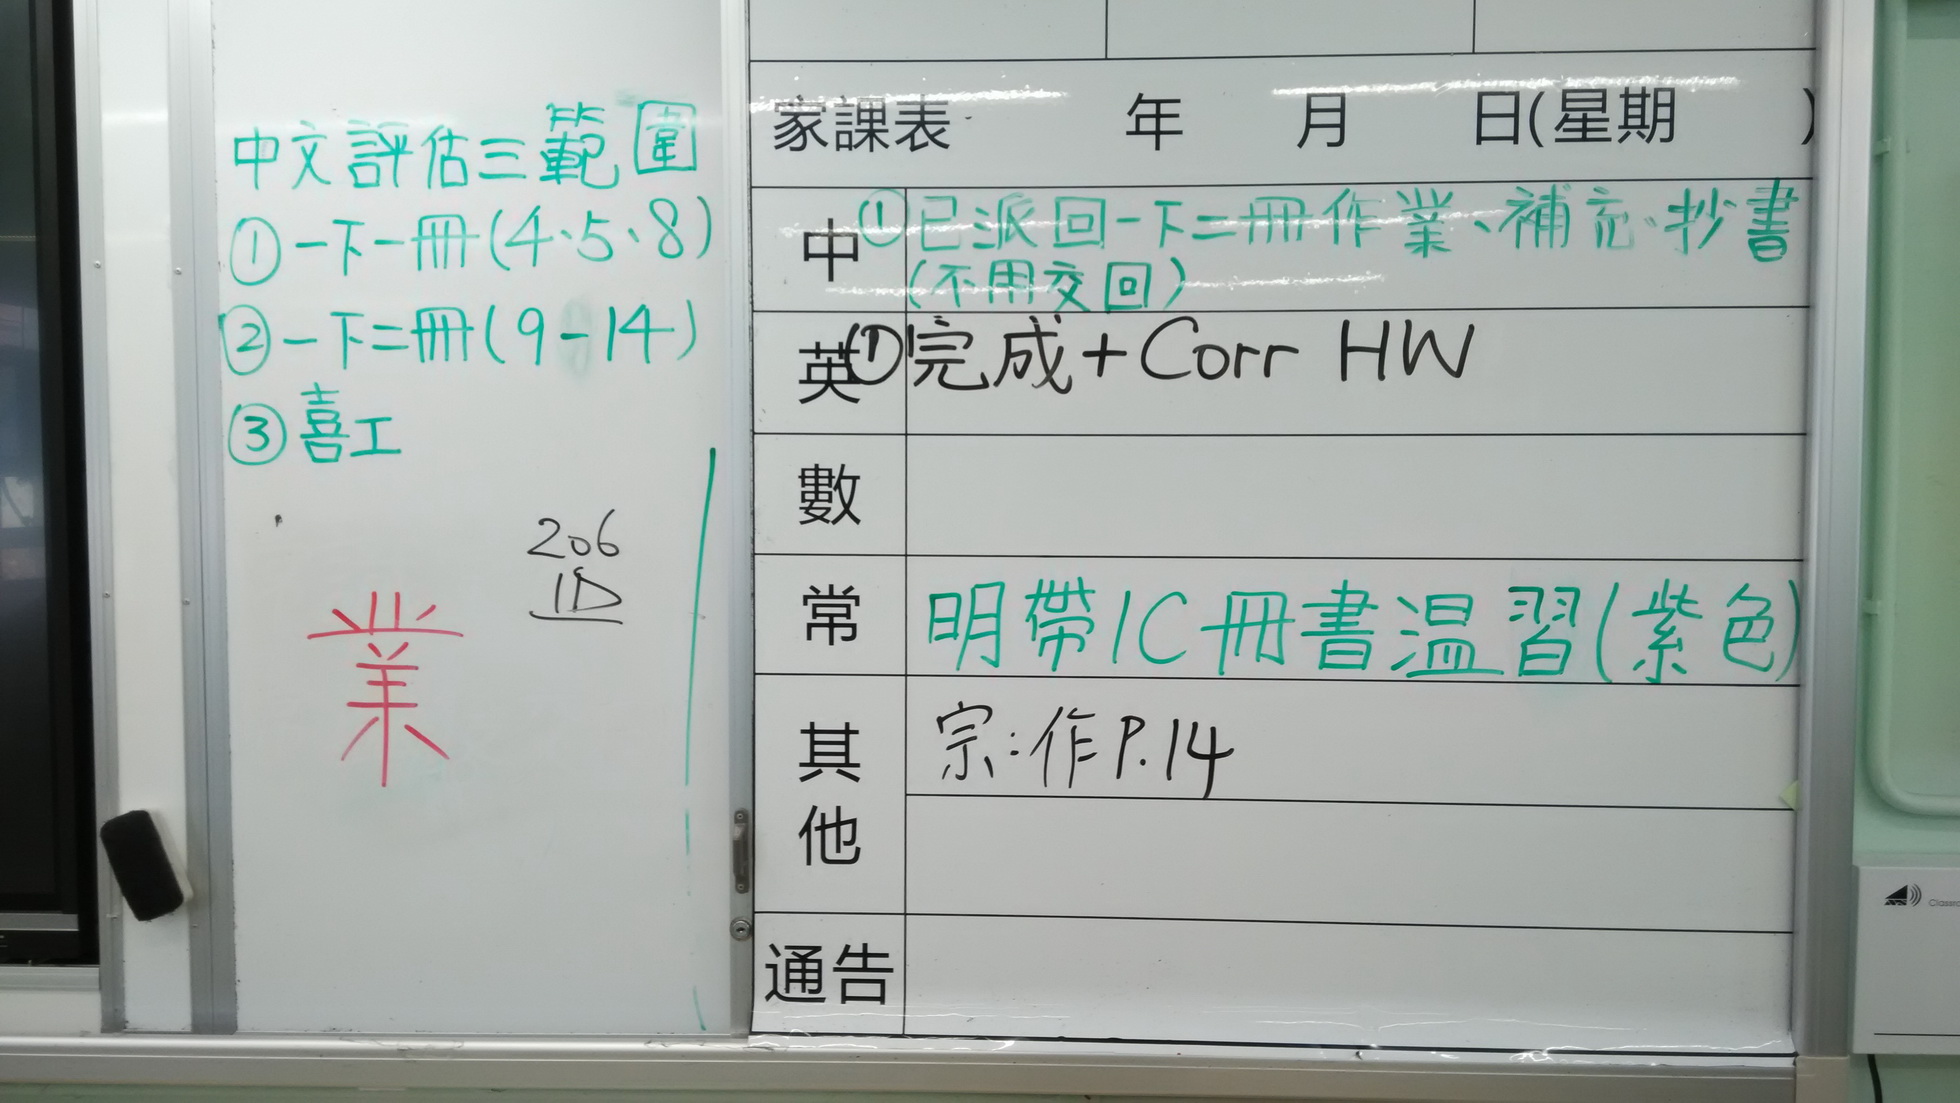 中文評估三範圍
①一下一冊(4、5、8)
②一下二冊(9-14)
③喜工
206
1D
業
家課表 年 月 日(星期 )
中 ①已派回一下二冊作業、補充、抄書
(不用交回)
英 ①完成+Corr HW
數
常 明帶1C冊書温習(紫色)
其他 宗:作P.14
通告